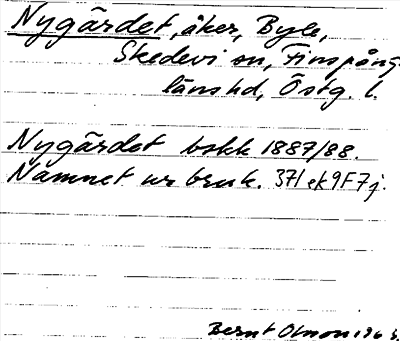 Nygärdet, åker, Byle,
Skedevi sn, Finspång
länshd, Östg. l.
Nygärdet bskk 1887/88.
Namnet ur bruk. 37 ek 9F7j.
Bernt Olsson 196